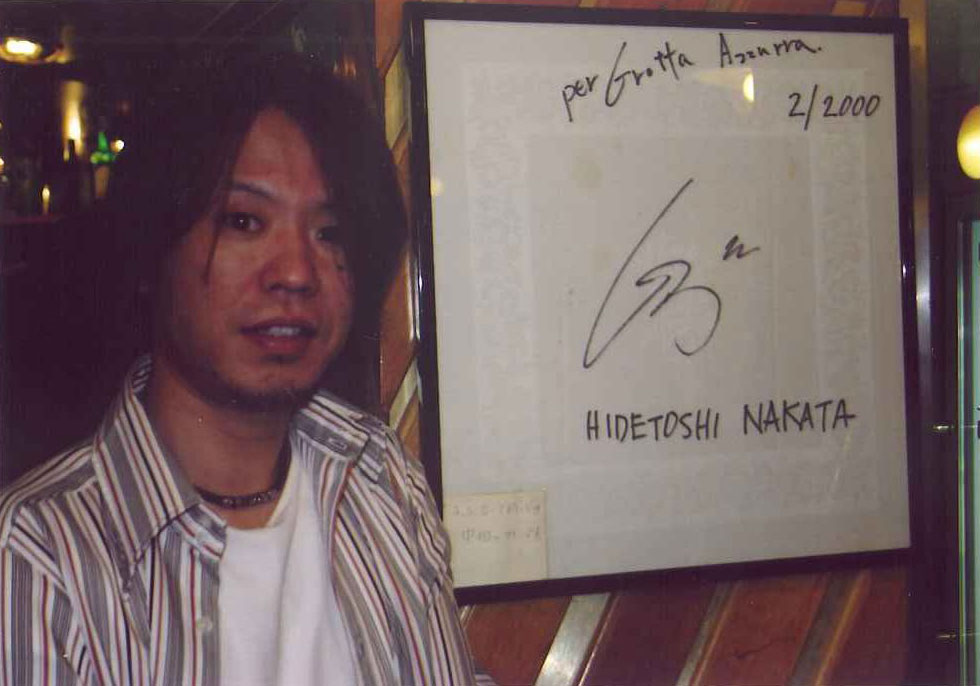 per Grotta Azzurra.
2/2000
HIDETOSHI NAKATA